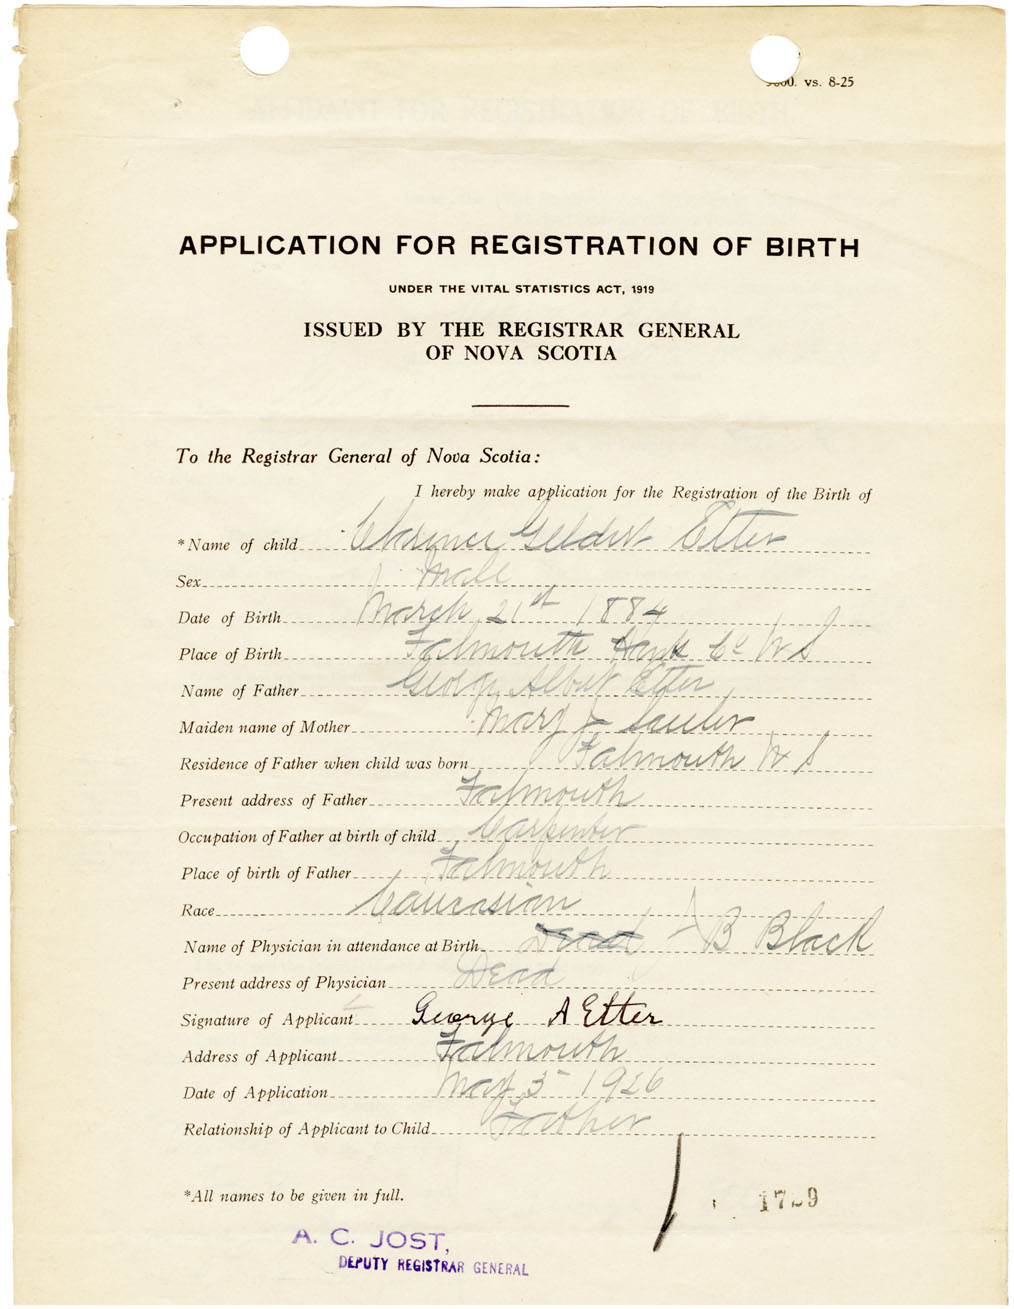 vs. 8-25
APPLICATION FOR REGISTRATION OF BIRTH
UNDER THE VITAL STATISTICS ACT, 1919
ISSUED BY THE REGISTRAR GENERAL
OF NOVA SCOTIA
To the Registrar General of Nova Scotia:
I hereby make application for the Registration of the Birth of
*Name of child Clarence Geldert Etter
Sex Male
Date of Birth March 21st 1884
Place of Birth Falmouth Hants Co N S
Name of Father George Albert Etter
Maiden name of Mother Mary J
Residence of Father when child was born Falmouth N S
Present address of Father Falmouth
Occupation of Father at birth of child Carpenter
Place of birth of Father Falmouth
Race Caucasian
Name of Physician in attendance at Birth Dead J B Black
Present address of Physician Dead
Signature of Applicant George A Etter
Address of Applicant Falmouth
Date of Application May 1926
Relationship of Applicant to Child Father
*All names to be given in full.
A. C. JOST,
DEPUTY REGISTRAR GENERAL